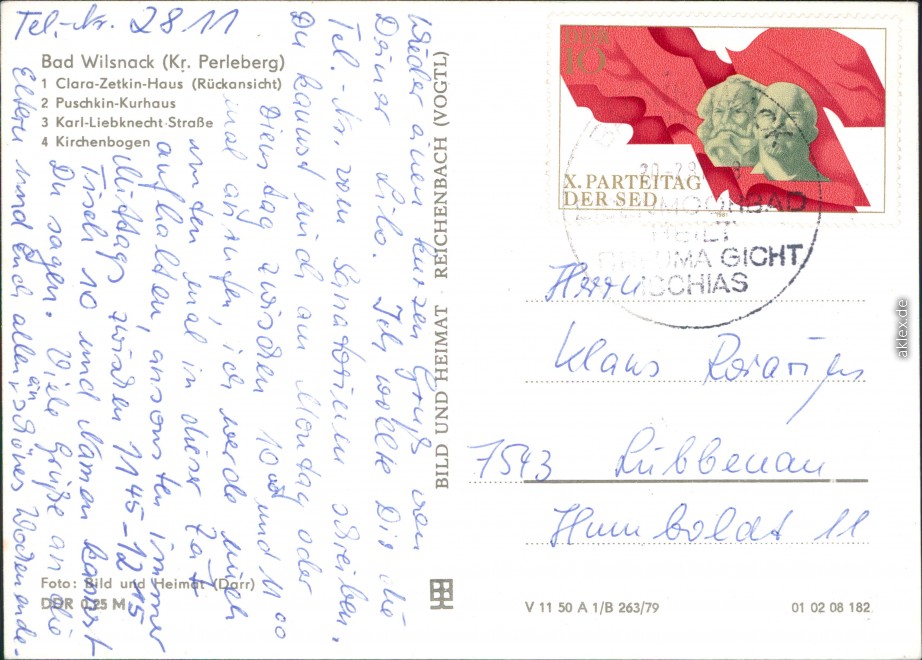 Tel.-Nr. 2811
Bad Wilsnack (Kr. Perleberg)
1 Clara-Zetkin-Haus (Rückansicht)
2 Puschkin-Kurhaus
3 Karl-Liebknecht-Straße
4 Kirchenbogen
Wieder einen kurzen Gruß von
Deiner Lilo. Ich wollte Dir die
Tel.-Nr. vom Sanatorium schreiben.
Du kannst mich am Montag oder
Dienstag zwischen 10 00 und 11 00
mal anrufen, ich werde mich
unten mal in dieser Zeit
aufhalten, ansonsten immer
Mittags zwischen 11 45 - 12 45
Tisch 10 und Namen kannst
Du sagen. Viele Grüße an die
Eltern und Euch allen ein schönes Wochenende.
Foto: Bild und Heimat (Darr)
DDR 0,25 M
BILD UND HEIMAT · REICHENBACH (VOGTL)
DDR
10
X. PARTEITAG
DER SED
MOORBAD
HEILT
RHEUMA GICHT
ISCHIAS
Herrn
Klaus
7543 Lübbenau
Humboldt 11
V 11 50 A 1/B 263/79
01 02 08 182
aklex.de